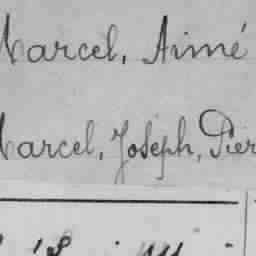 Marcel, Aimé
Marcel, Joseph, Pier